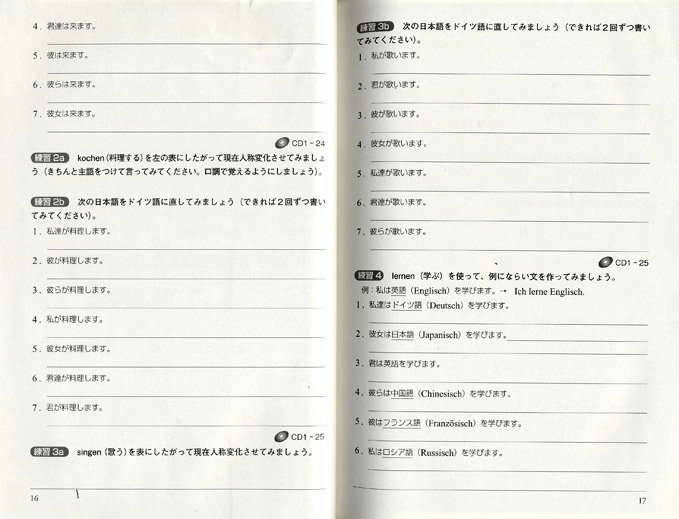 4. 君達は来ます。
5. 彼は来ます。
6. 彼らは来ます。
7. 彼女は来ます。
CD1-24
練習2a kochen(料理する)を左の表にしたがって現在人称変化させてみましょ
う(きちんと主語をつけて言ってみてください。口調で覚えるようにしましょう)。
練習2b 次の日本語をドイツ語に直してみましょう(できれば2回ずつ書い
てみてください)。
1. 私達が料理します。
2. 彼が料理します。
3. 彼らが料理します。
4. 私が料理します。
5. 彼女が料理します。
6. 君達が料理します。
7. 君が料理します。
CD1-25
練習3a singen(歌う)を表にしたがって現在人称変化させてみましょう。
16
練習3b 次の日本語をドイツ語に直してみましょう(できれば2回ずつ書い
てみてください)。
1. 私が歌います。
2. 君が歌います。
3. 彼が歌います。
4. 彼女が歌います。
5. 私達が歌います。
6. 君達が歌います。
7. 彼らが歌います。
CD1-25
練習4 lernen(学ぶ)を使って、例にならい文を作ってみましょう。
例:私は英語(Englisch)を学びます。→ Ich lerne Englisch.
1. 私達はドイツ語(Deutsch)を学びます。
2. 彼女は日本語(Japanisch)を学びます。
3. 君は英語を学びます。
4. 彼らは中国語(Chinesisch)を学びます。
5. 彼はフランス語(Französisch)を学びます。
6. 私はロシア語(Russisch)を学びます。
17